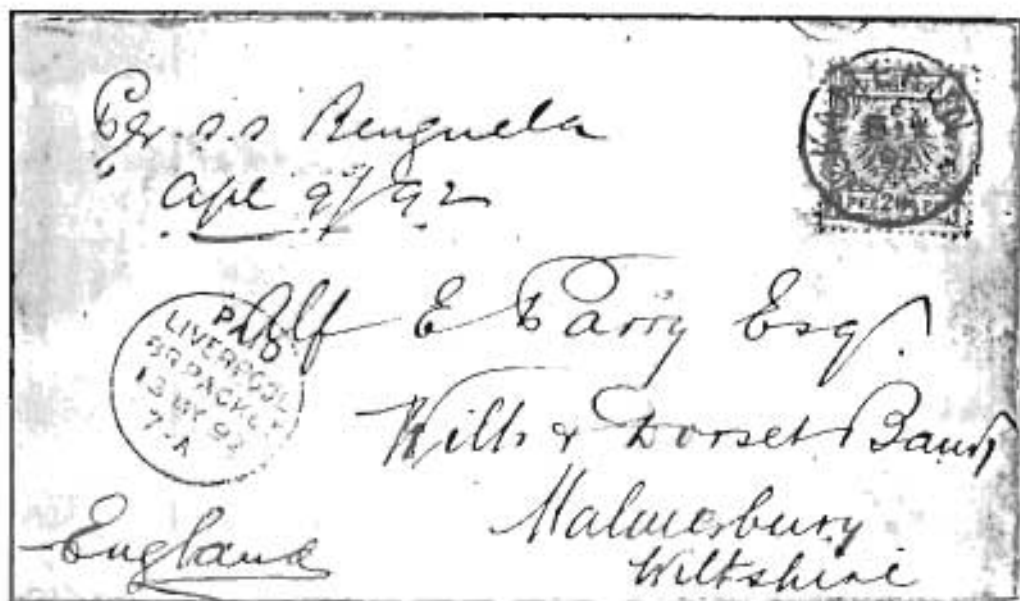 Per. s.s Benguela
Apl 9/92
PAID
LIVERPOOL
BR PACKET
13 MY 92
7-A
Alf E Parry Esq.
Wilts & Dorset Bank
Malmesbury
Wiltshire
England
20